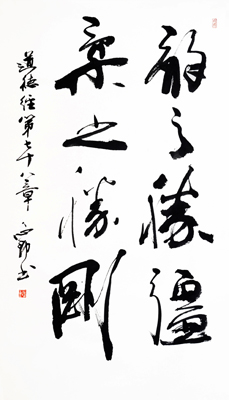 弱之勝彊
柔之勝剛
道德經第七十八章 書